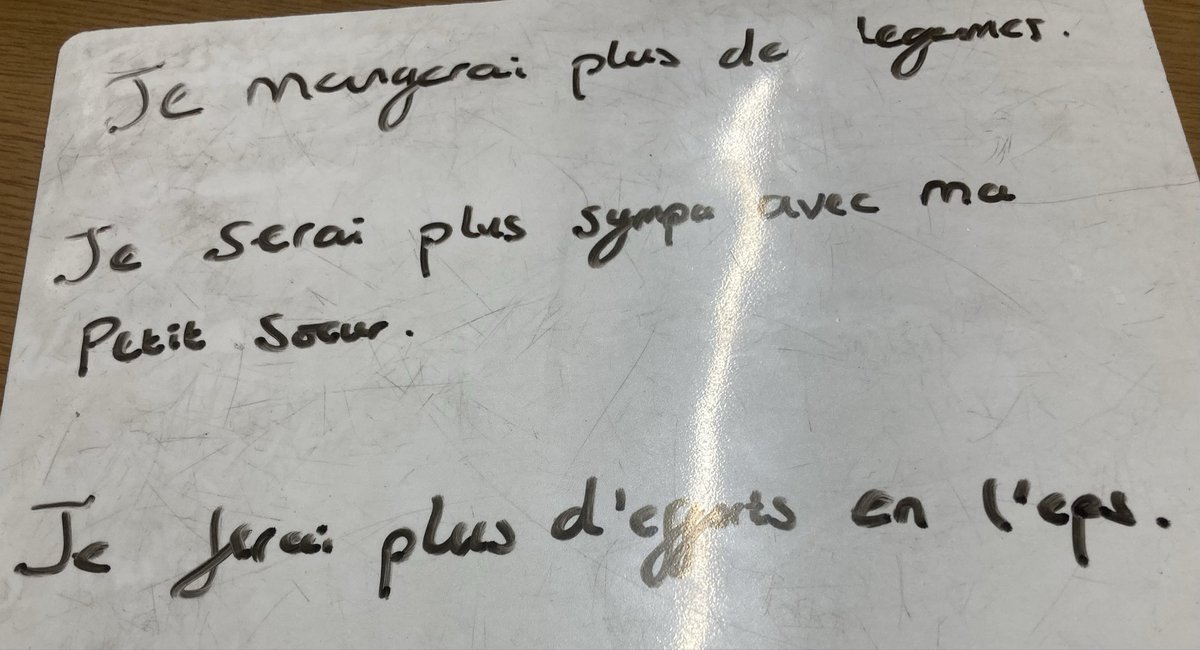 Je mangerai plus de legumes.
Je serai plus sympa avec ma
Petit Soeur.
Je ferai plus d'efforts en l'eps.